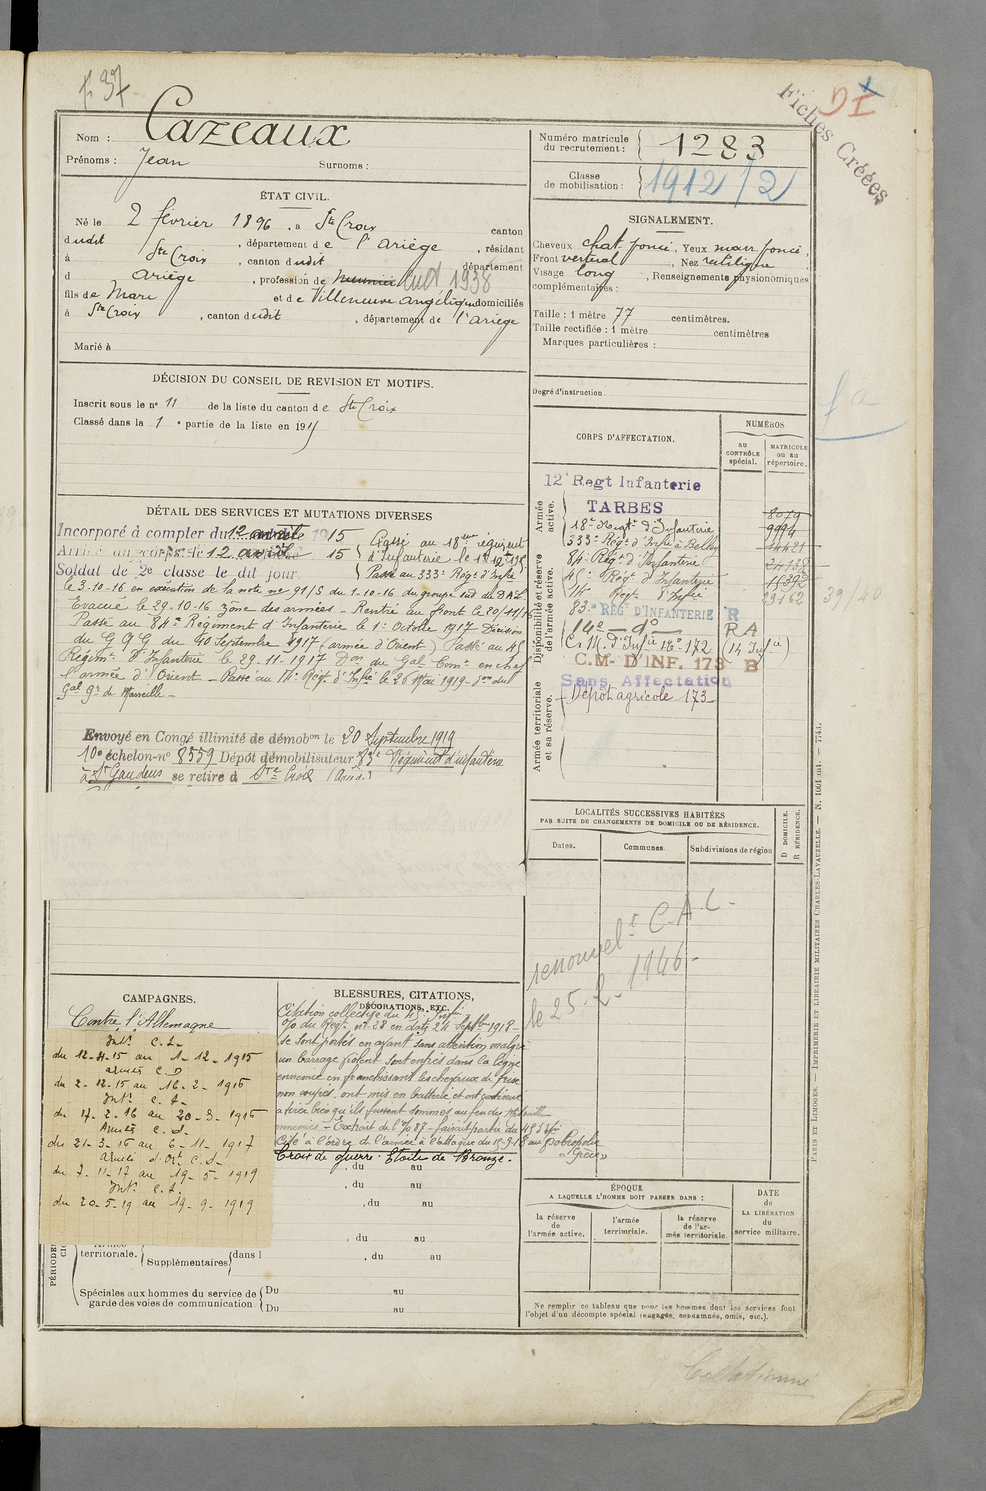 f. 37
Fiches Créées
DI
Nom : Cazeaux
Prénoms : Jean Surnoms :
Numéro matricule du recrutement : 1283
Classe de mobilisation : 1912/2
ÉTAT CIVIL.
Né le 2 février 1896, à Ste Croix canton
dudit, département de l'Ariège, résidant
à Ste Croix, canton dudit département
d Ariège, profession de meunier cult 1938
fils de Marc et de Villeneuve Angélique domiciliés
à Ste Croix, canton dudit, département de l'Ariège
Marié à
SIGNALEMENT.
Cheveux chat. foncé, Yeux marr. foncé,
Front vertical, Nez rectiligne
Visage long, Renseignements physionomiques
complémentaires :
Taille : 1 mètre 77 centimètres.
Taille rectifiée : 1 mètre centimètres
Marques particulières :
Degré d'instruction
DÉCISION DU CONSEIL DE REVISION ET MOTIFS.
Inscrit sous le n° 11 de la liste du canton de Ste Croix
Classé dans la 1e partie de la liste en 1915
CORPS D'AFFECTATION.
NUMÉROS
au CONTRÔLE spécial.
MATRICULE ou au répertoire.
fa
Armée active.
12e Regt Infanterie
TARBES
18e Regt d'Infanterie
333e Régt d'Infie à Belley
Disponibilité et réserve de l'armée active.
84e Régt d'Infanterie
45e Régt d'Infanterie
14e Regt d'Infie
83e REGt D'INFANTERIE R
14e — do — RA
C. M. d'Infie No 172 (14 Infie)
C.M. D'INF. 173 B
Sans Affectation
Armée territoriale et sa réserve.
Dépôt agricole 173
8079
23162
39/40
DÉTAIL DES SERVICES ET MUTATIONS DIVERSES
Incorporé à compter du 12 avril 1915
Arrivé au corps le 12 avril 15
Soldat de 2e classe le dit jour.
Passé au 18ème régiment
d'Infanterie le 1er 12 15
Passé au 333e Régt d'Infie
le 3-10-16 en exécution de la note no 91/5 du 1-10-16 du groupe sud du D.A.L.
Evacué le 29-10-16 zône des armées - Rentré au front le 20/11/16
Passé au 84e Régiment d'Infanterie le 1er Octobre 1917 Décision
du G Q G du 10 Septembre 1917 (armée d'Orient) Passé au 45
Régimt d'Infanterie le 29-11-1917 Don du Gal Comt en chef
l'armée d'Orient - Passé au 14e Regt d'Infie le 26 Mai 1919 - don du
Gal Gr de Marseille -
Envoyé en Congé illimité de démobon le 20 Septembre 1919
10e échelon-no 8559 Dépôt démobilisateur 83e Régiment d'infanterie
à St Gaudens se retire à Ste Croix
LOCALITÉS SUCCESSIVES HABITÉES
PAR SUITE DE CHANGEMENTS DE DOMICILE OU DE RÉSIDENCE.
Dates. Communes. Subdivisions de région
D DOMICILE. R RÉSIDENCE.
renouvelt C.A.C.
le 25-2-1946
CAMPAGNES.
Contre l'Allemagne
Intr C.S.
du 12-4-15 au 1-12-1915
armées C.D
du 2-12-15 au 16-2-1916
Intr C.S.
du 17-2-16 au 20-3-1916
Armées C.D.
du 21-3-16 au 6-11-1917
armée d'Ort C.D.
du 7-11-17 au 19-5-1919
Intr C.S.
du 20-5-19 au 19-9-1919
BLESSURES, CITATIONS, DÉCORATIONS, ETC.
Citation collective du 45 Infie
O/O du Regt No 28 en date 24 Septbre 1918 -
Se sont portés en avant sans attention malgré
un barrage violent sont entrés dans la ligne
ennemie en franchissant les chevaux de frise
non coupés, ont mis en batterie et ont continué
a tirer bien qu'ils fussent dominés au feu des
ennemies - Extrait de l'O 87 - faisait partie du 45 Infie
Cité à l'ordre de l'armée à l'attaque du 15-9-18 au Dobropolje
Grèce
Croix de guerre. Etoile de Bronze.
, du au
, du au
, du au
, du au
, du au
PÉRIODES
territoriale. Supplémentaires dans l
Spéciales aux hommes du service de garde des voies de communication. Du au
Du au
ÉPOQUE
A LAQUELLE L'HOMME DOIT PASSER DANS :
la réserve de l'armée active.
l'armée territoriale.
la réserve de l'armée territoriale.
DATE de LA LIBÉRATION du service militaire.
Ne remplir ce tableau que pour les hommes dont les services font
l'objet d'un décompte spécial (engagés, condamnés, omis, etc.).
PARIS ET LIMOGES. — IMPRIMERIE ET LIBRAIRIE MILITAIRES CHARLES-LAVAUZELLE. —
Collationné